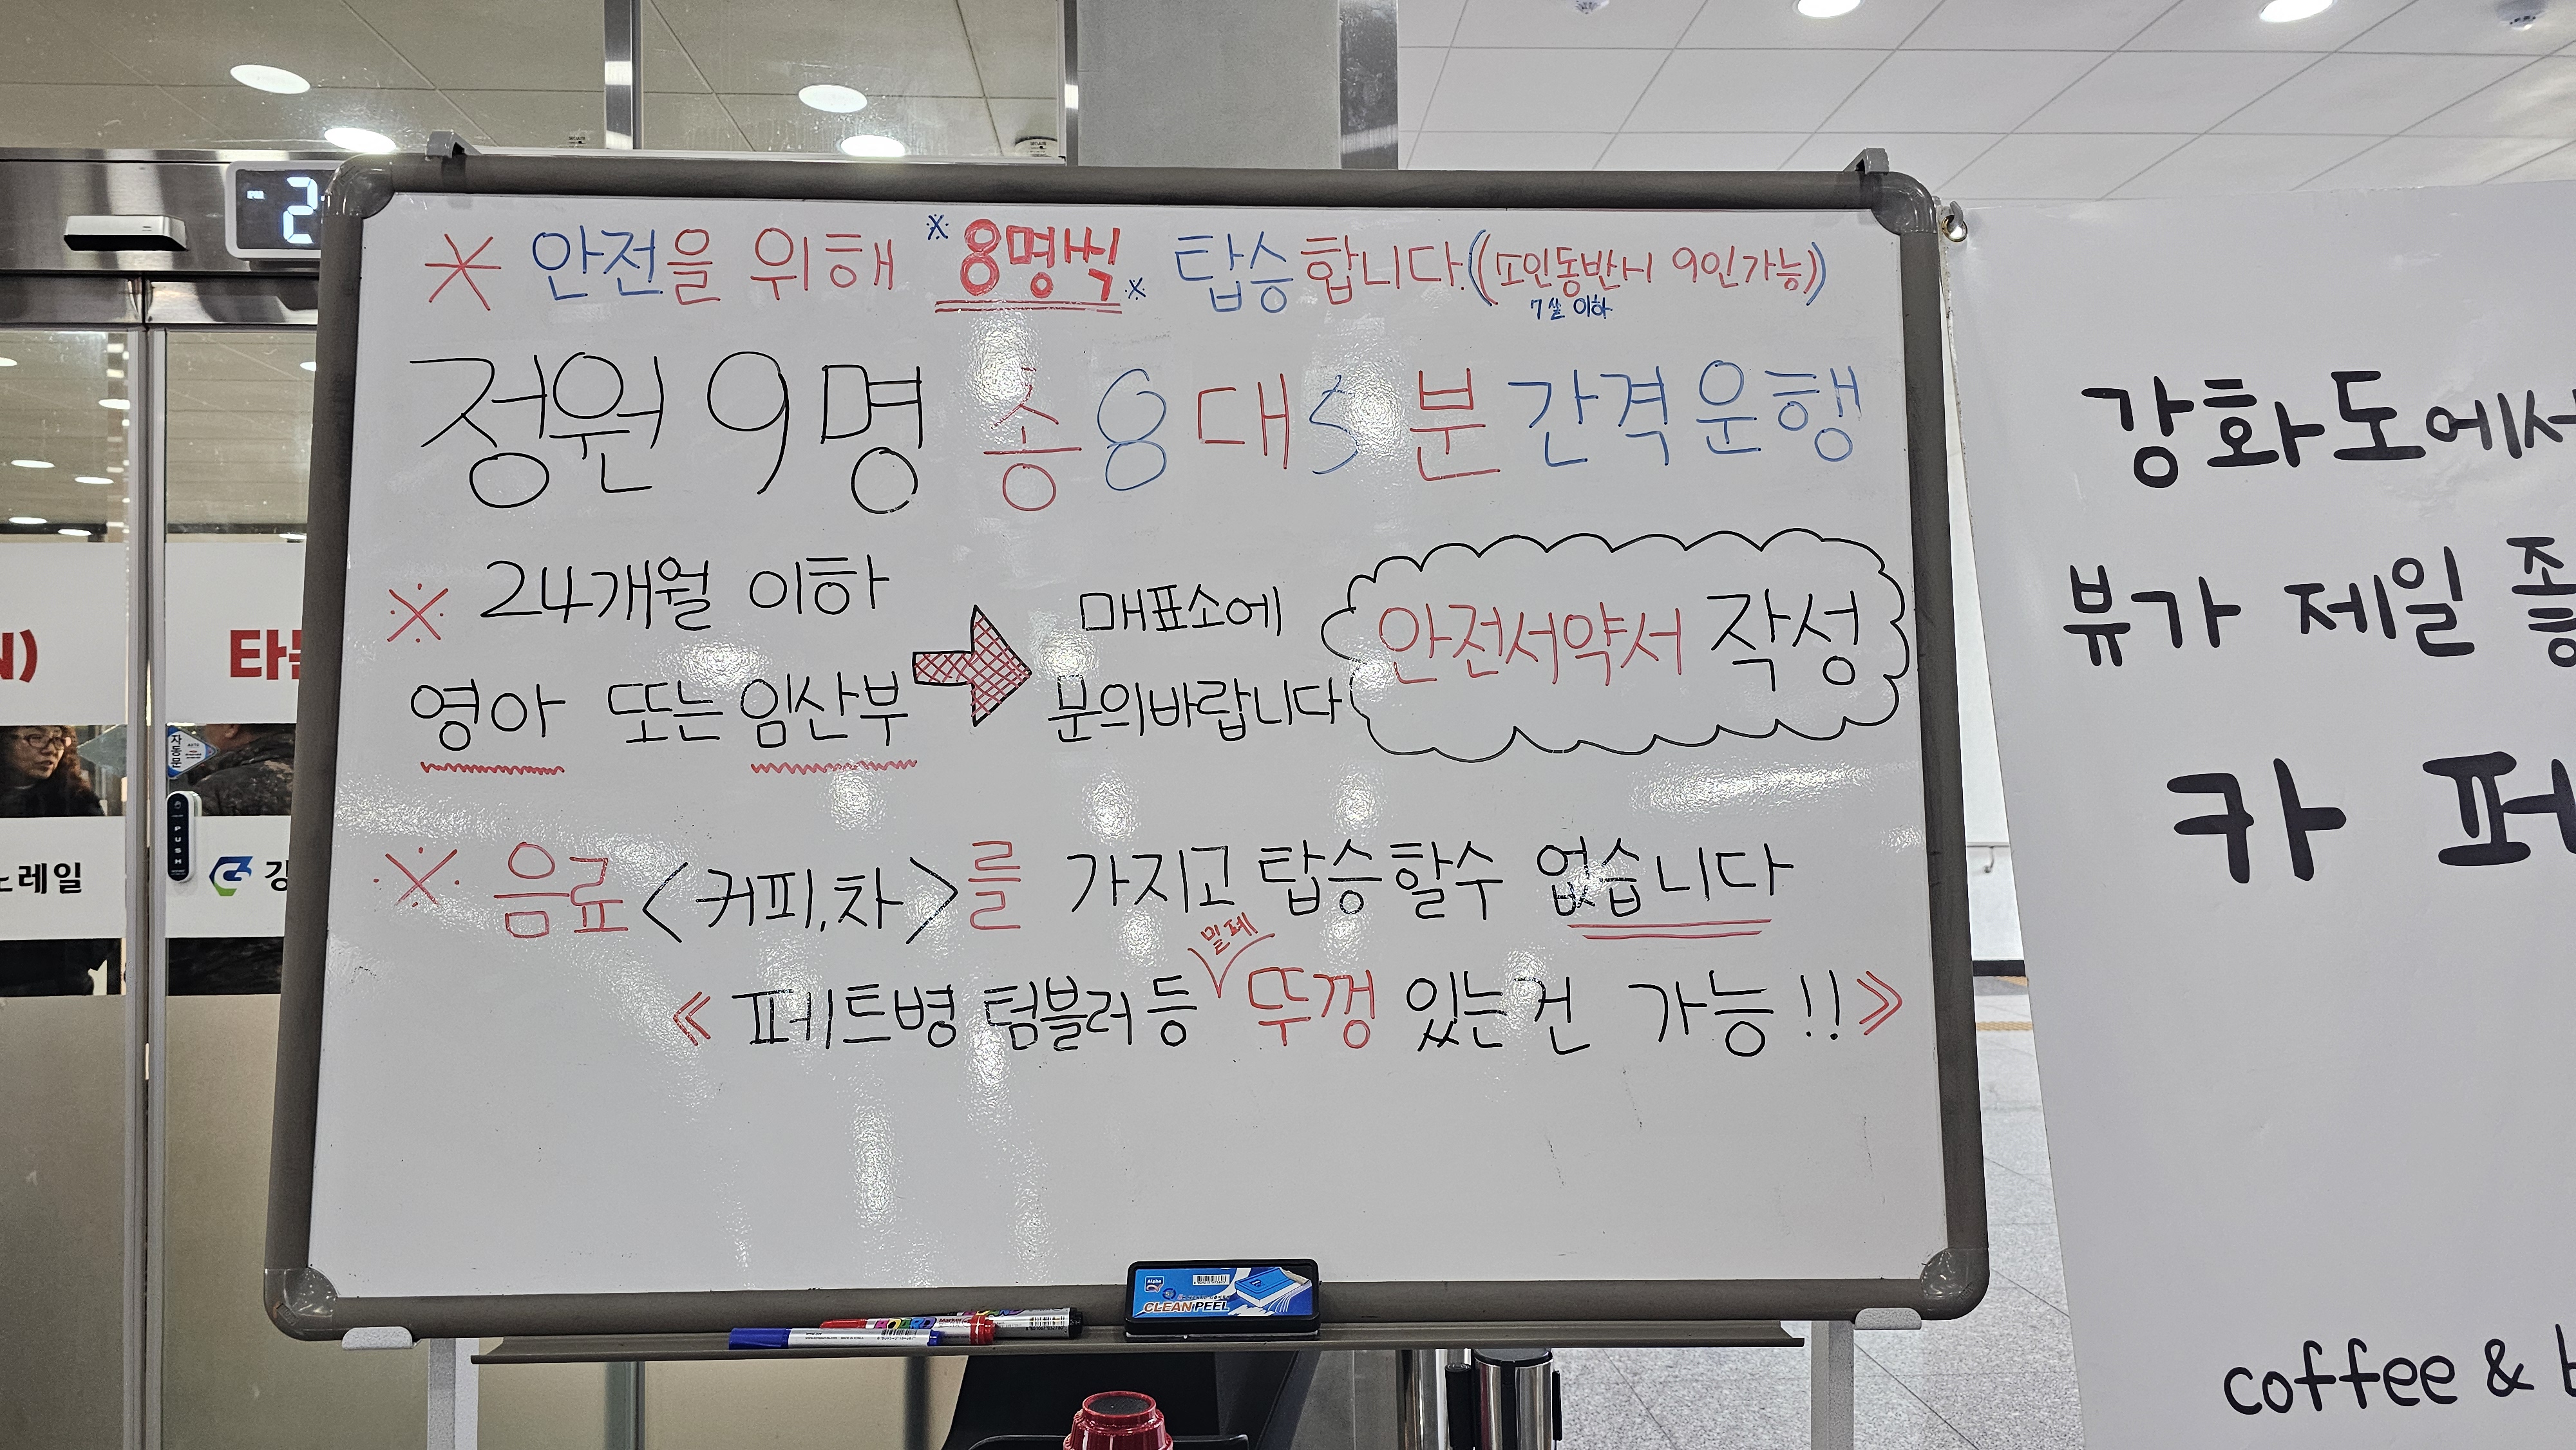 * 안전을 위해 ※8명씩※ 탑승합니다.((소인동반시 9인가능))
7살 이하
정원 9명 총 8대 5분 간격 운행
※ 24개월 이하
영아 또는 임산부
매표소에
문의바랍니다
안전서약서 작성
※ 음료<커피,차>를 가지고 탑승할수 없습니다
밀폐
《페트병 텀블러 등 뚜껑 있는건 가능!!》
강화도에서
뷰가 제일
카 페
coffee &
노레일
자동문
PUSH
강
-2
Alpha
CLEAN PEEL